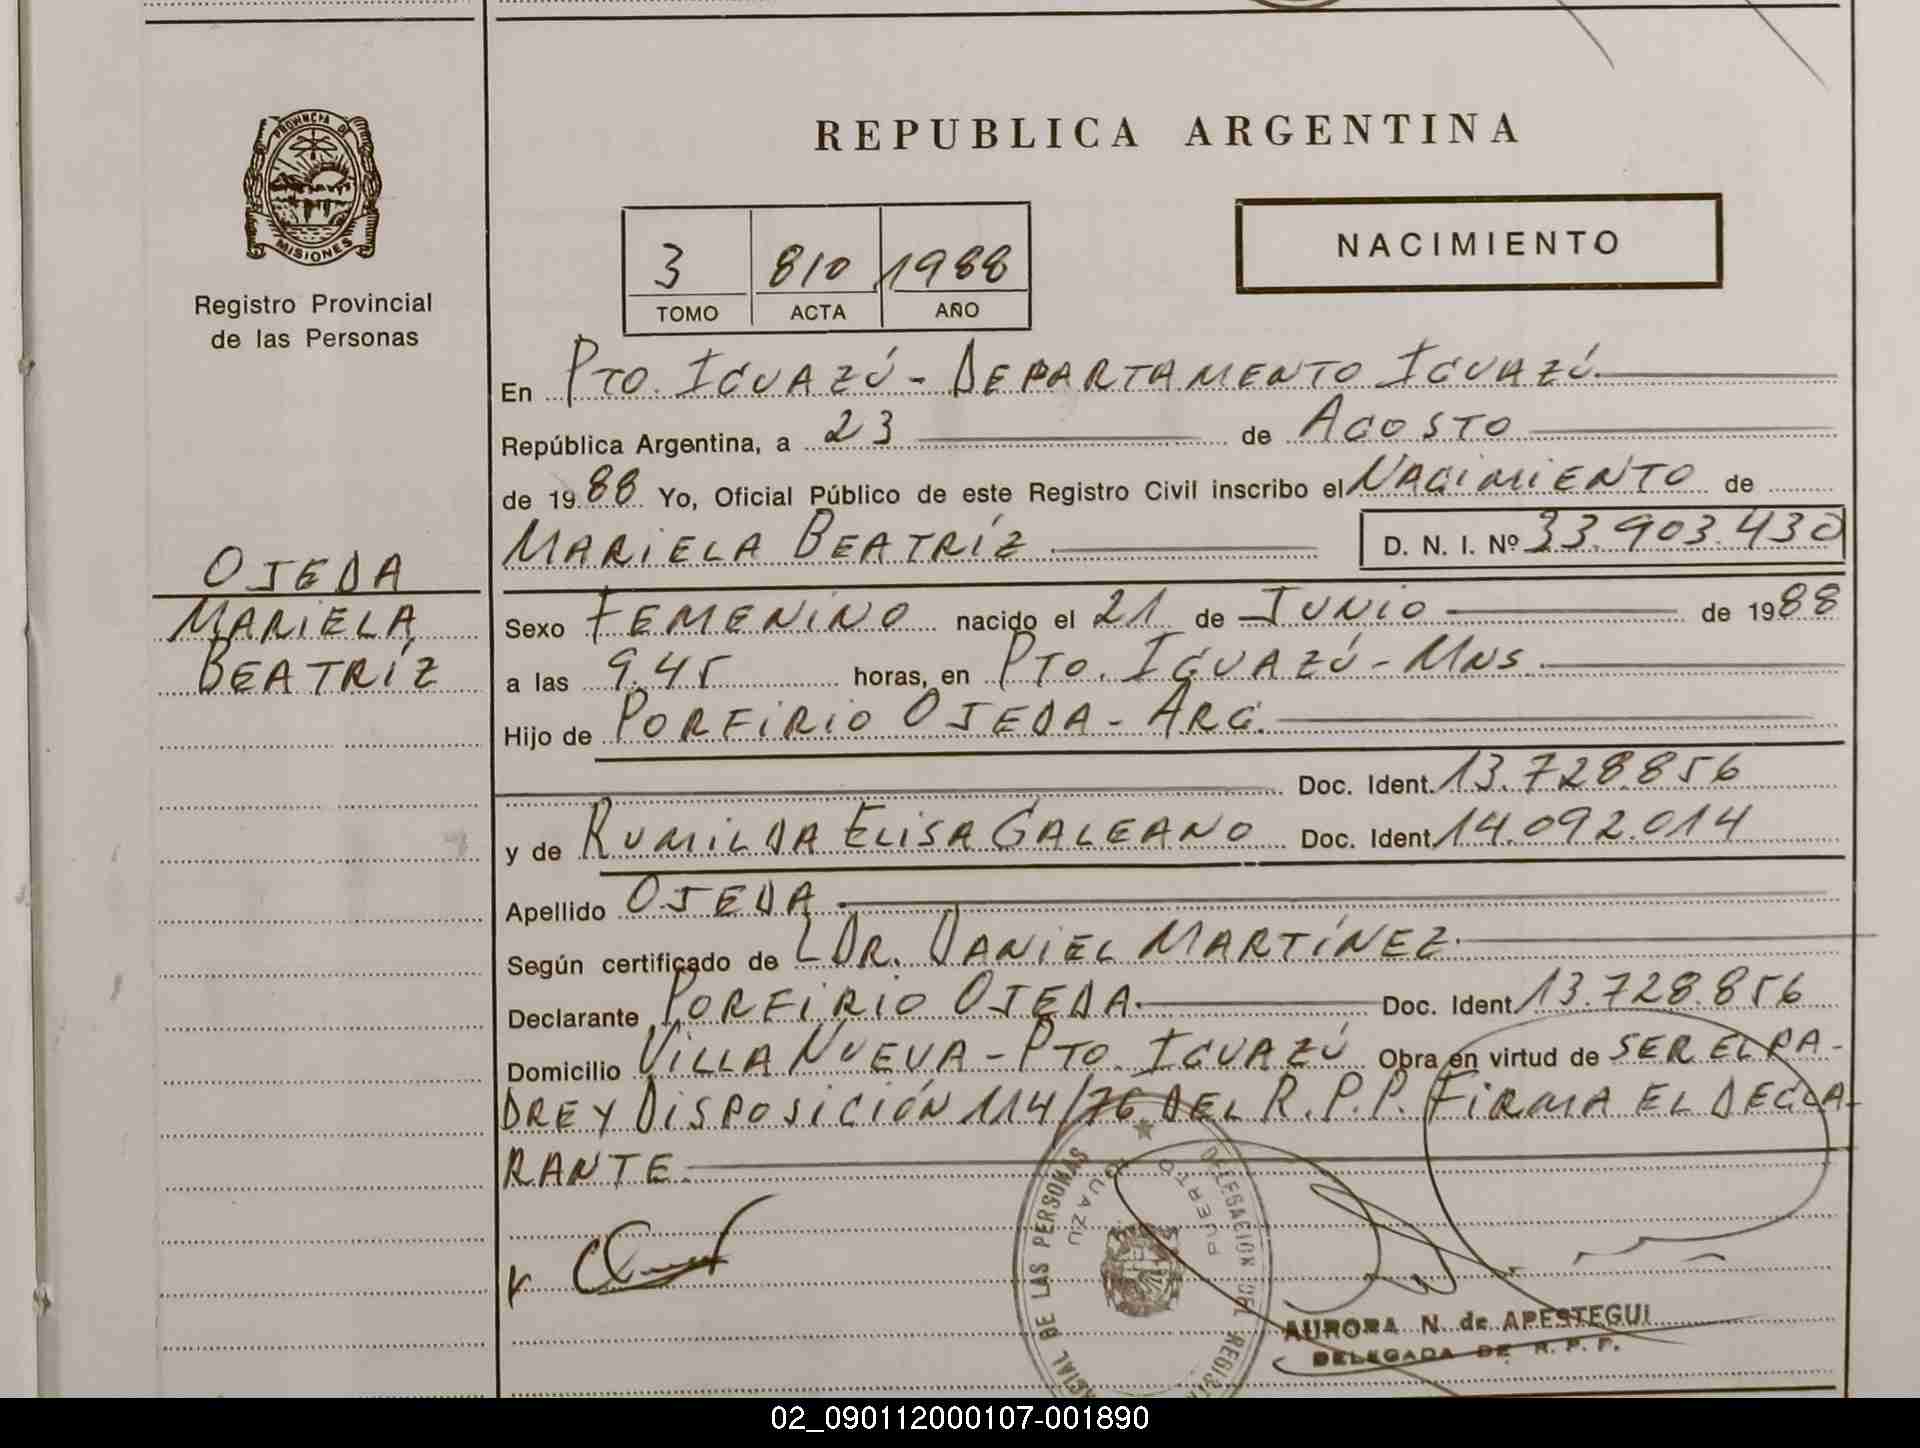 PROVINCIA DE
MISIONES
Registro Provincial
de las Personas
OJEDA
MARIELA
BEATRÍZ
REPUBLICA ARGENTINA
3 810 1988
TOMO ACTA AÑO
NACIMIENTO
En PTO. IGUAZÚ - DEPARTAMENTO IGUAZÚ.
República Argentina, a 23 de AGOSTO
de 1988 Yo, Oficial Público de este Registro Civil inscribo el NACIMIENTO de
MARIELA BEATRÍZ D. N. I. Nº 33.903.430
Sexo FEMENINO nacido el 21 de JUNIO de 1988
a las 9.45 horas, en PTO. IGUAZÚ - MNS.
Hijo de PORFIRIO OJEDA - ARG.
Doc. Ident. 13.728.856
y de RUMILDA ELISA GALEANO Doc. Ident. 14.092.014
Apellido OJEDA.
Según certificado de DR. DANIEL MARTÍNEZ.
Declarante PORFIRIO OJEDA. Doc. Ident. 13.728.856
Domicilio VILLA NUEVA - PTO. IGUAZÚ Obra en virtud de SER EL PA-
DRE Y DISPOSICIÓN 114/76 DEL R.P.P. FIRMA EL DECLA-
RANTE.
DELEGACION DEL REGIST
CIAL DE LAS PERSONAS
PUERTO IGUAZU
AURORA N. de APESTEGUI
DELEGADA DE R. P. P.
02_090112000107-001890